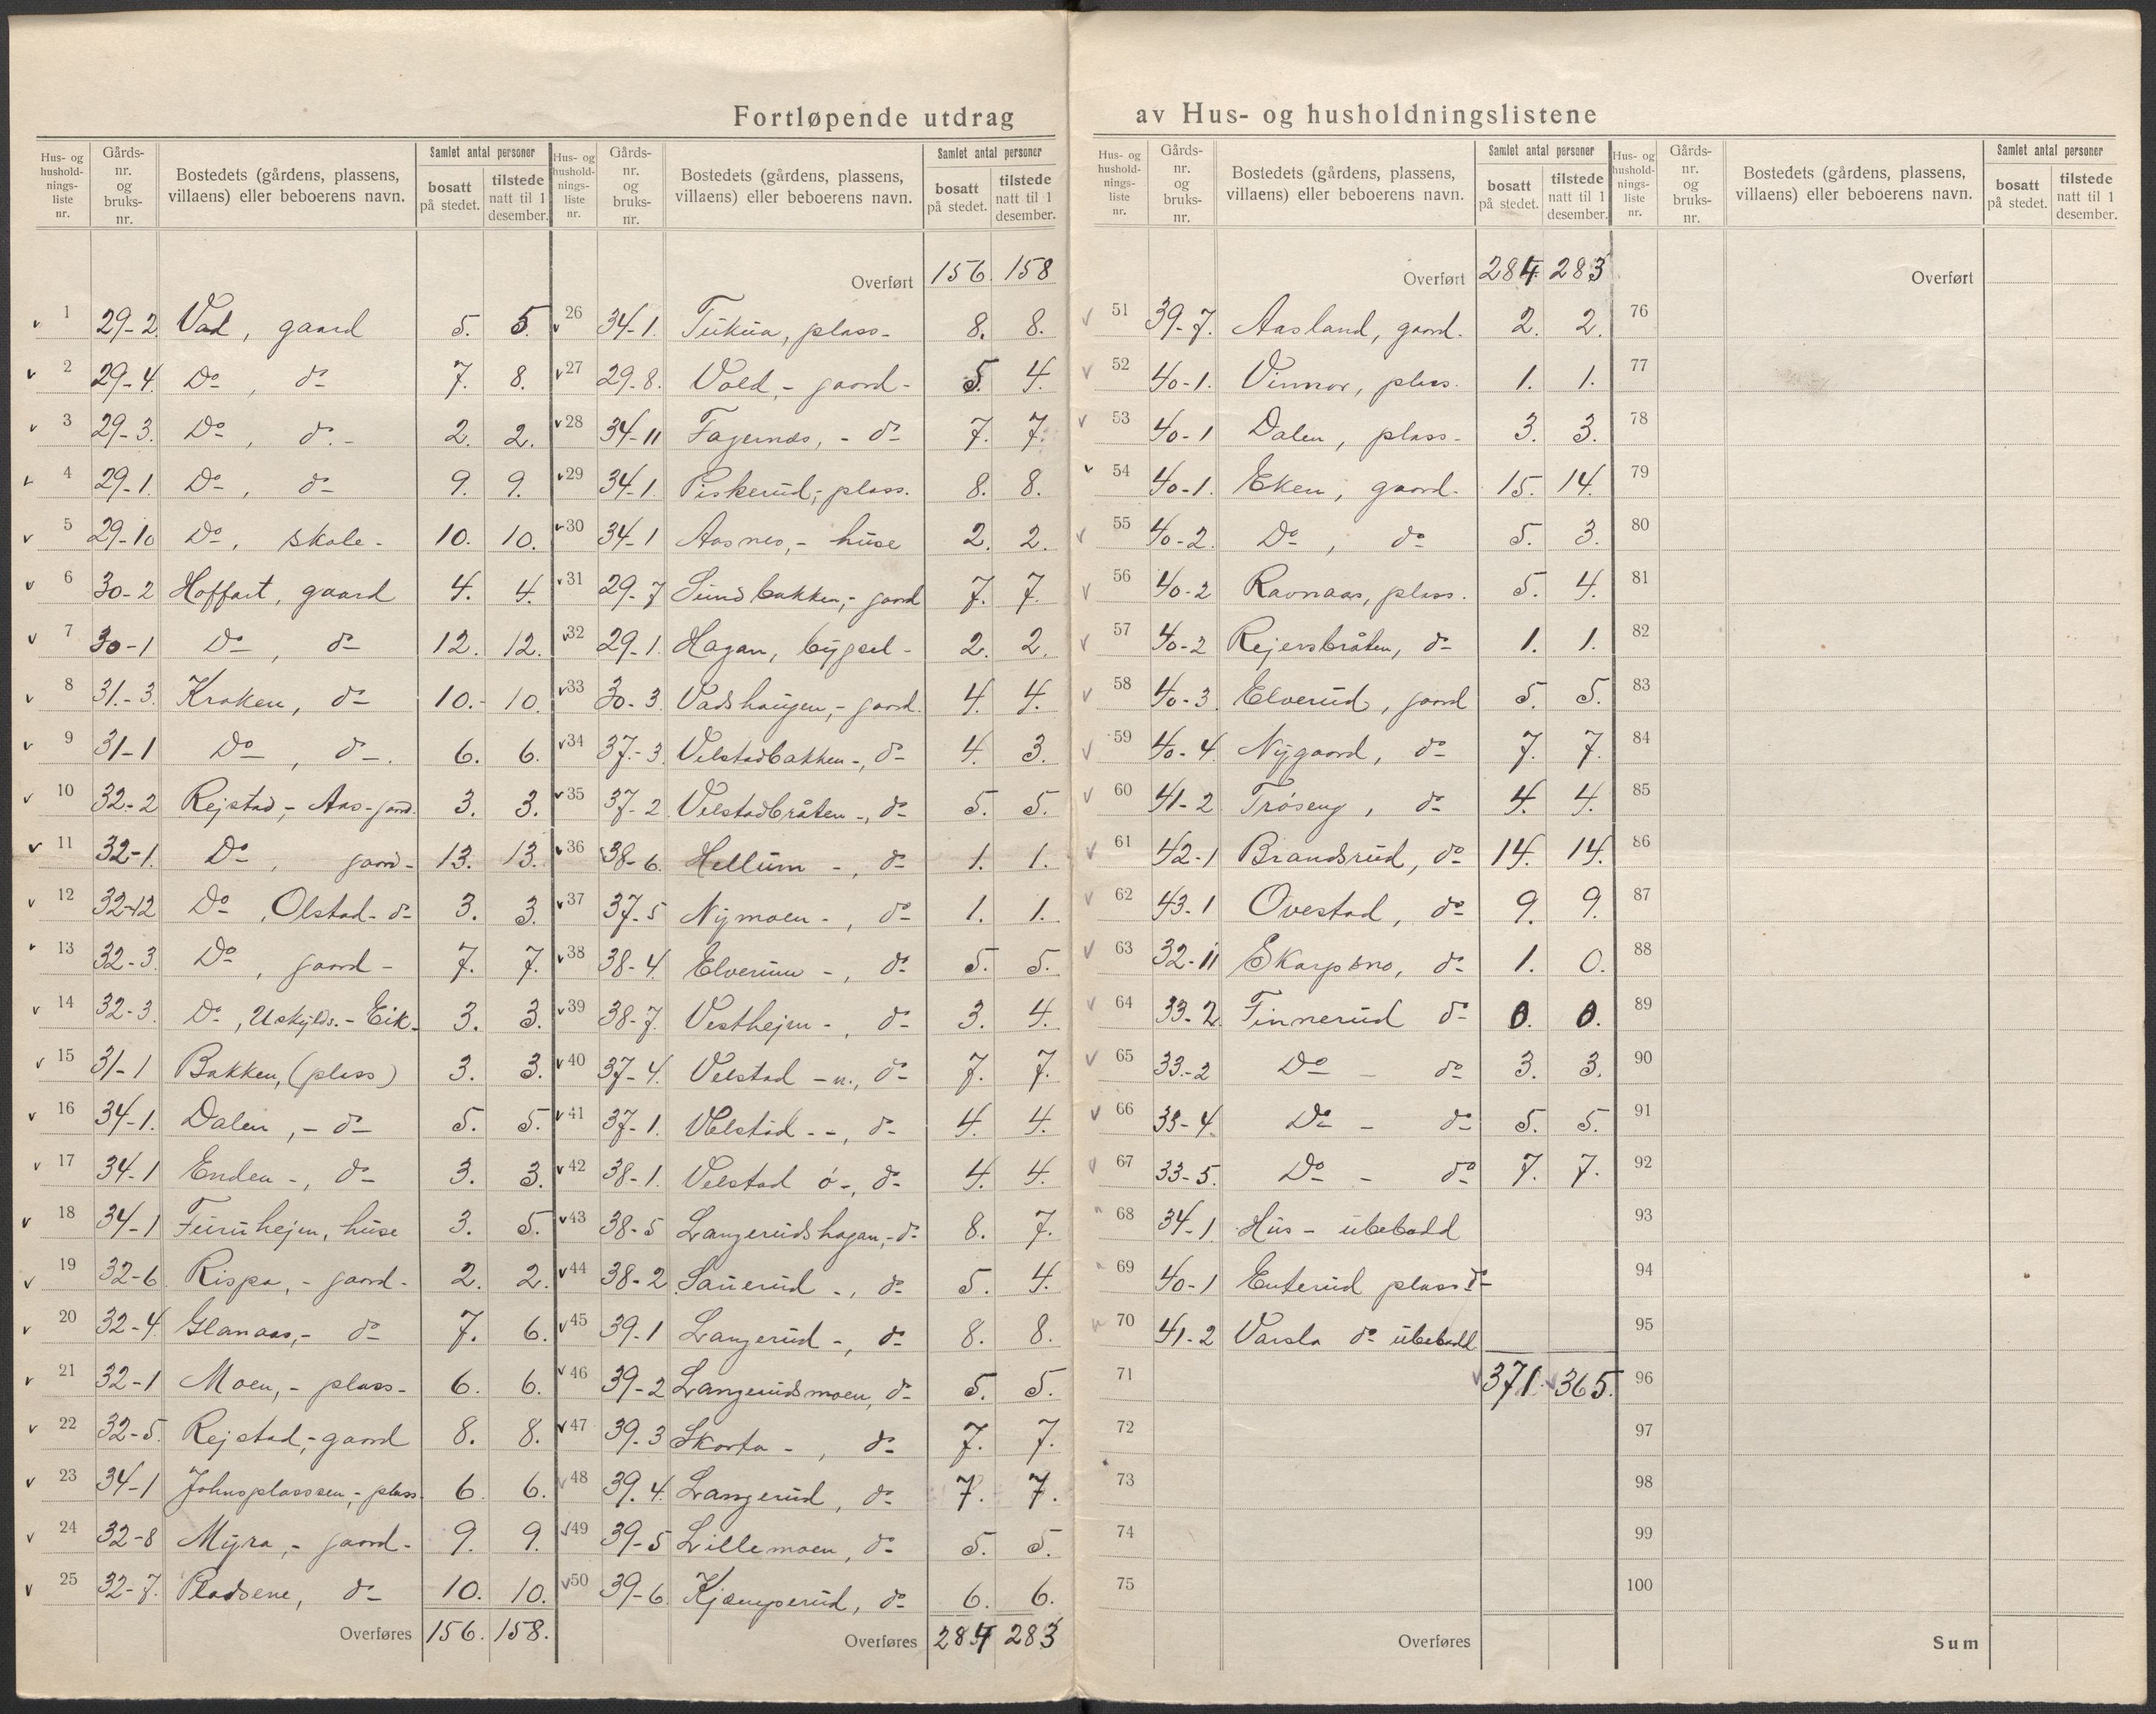 Fortløpende utdrag av Hus- og husholdningslistene
Hus- og husholdnings-liste nr. | Gårds-nr. og bruks-nr. | Bostedets (gårdens, plassens, villaens) eller beboerens navn. | Samlet antal personer: bosatt på stedet. | tilstede natt til 1 desember.
1 29-2 Vad, gaard 5. 5.
2 29-4. Do, do 7. 8.
3 29-3. Do, do 2. 2.
4 29-1. Do, do 9. 9.
5 29-10 Do, skole- 10. 10.
6 30-2 Hoffart, gaard 4. 4.
7 30-1 Do, do 12. 12.
8 31-3. Kraken, do 10. 10.
9 31-1 Do, do 6. 6.
10 32-2 Rejstad,- Aas-gaard. 3. 3.
11 32-1. Do, gaard- 13. 13.
12 32-12 Do, Olstad- do 3. 3.
13 32-3. Do, gaard- 7. 7.
14 32-3. Do, Uskylds.- Eik. 3. 3.
15 31-1 Bakken, (plass) 3. 3.
16 34-1. Dalen,- do 5. 5.
17 34-1 Enden-, do 3. 3.
18 34-1 Furuhejm, huse 3. 5.
19 32-6 Rispa,- gaard- 2. 2.
20 32-4 Glanaas,- do 7. 6.
21 32-1 Moen,- plass- 6. 6.
22 32-5. Rejstad,-gaard 8. 8.
23 34-1 Johnsplasssen,- plass 6. 6.
24 32-8 Myra,- gaard- 9. 9.
25 32-7. Pladsene, do 10. 10.
Overføres 156. 158.
Hus- og husholdnings-liste nr. | Gårds-nr. og bruks-nr. | Bostedets (gårdens, plassens, villaens) eller beboerens navn. | Samlet antal personer: bosatt på stedet. | tilstede natt til 1 desember.
Overført 156. 158
26 34-1. Tukua, plass- 8. 8.
27 29-8. Vold,- gaard- 5. 4.
28 34-11 Fagernæs,- do 7. 7.
29 34-1. Piskerud,- plass. 8. 8.
30 34-1 Aasnes,- huse 2. 2.
31 29-7 Sundbakken,- gaard 7. 7.
32 29-1. Hagan, bygsel- 2. 2.
33 30-3. Vadshaugen,- gaard. 4. 4.
34 37-3. Velstadbakken-, do 4. 3.
35 37-2 Velstadbråten-, do 5. 5.
36 38-6. Hellum-, do 1. 1.
37 37-5 Nymoen-, do 1. 1.
38 38-4. Elverum-, do 5. 5.
39 38-7. Vesthejm-, do 3. 4.
40 37-4. Velstad -n., do 7. 7.
41 37-1. Velstad --, do 4. 4.
42 38-1. Velstad ø-, do 4. 4.
43 38-5 Langerudshagan,-do 8. 7.
44 38-2 Sauerud-, do 5. 4.
45 39-1 Langerud-, do 8. 8.
46 39-2 Langerudsmoen, do 5. 5.
47 39-3 Skorta-, do 7. 7.
48 39.4. Langerud, do 7. 7.
49 39-5 Lillemoen, do 5. 5.
50 39-6 Kjæmperud, do 6. 6.
Overføres 284 283
Hus- og husholdnings-liste nr. | Gårds-nr. og bruks-nr. | Bostedets (gårdens, plassens, villaens) eller beboerens navn. | Samlet antal personer: bosatt på stedet. | tilstede natt til 1 desember.
Overført 284. 283
51 39-7. Aasland, gaard. 2. 2.
52 40-1. Vinnor, plass. 1. 1.
53 40-1 Dalen, plass- 3. 3.
54 40-1. Eken, gaard- 15. 14.
55 40-2. Do, do 5. 3.
56 40-2 Ravnaas, plass. 5. 4.
57 40-2 Rejersbråten, do 1. 1.
58 40-3. Elverud, gaard 5. 5.
59 40-4 Nygaard, do 7. 7.
60 41-2 Trøseng, do 4. 4.
61 42-1 Brandsrud, do 14. 14.
62 43-1 Ovestad, do 9. 9.
63 32-11 Skarpsno, do 1. 0.
64 33-2 Finnerud do 0. 0.
65 33-2 Do - do 3. 3.
66 33-4. Do - do 5. 5.
67 33-5. Do - do 7. 7.
68 34-1. Hus- ubebodd
69 40-1 Enterud plass do
70 41-2 Varsla do ubebodd
71 371. 365.
72
73
74
75
Overføres
Hus- og husholdnings-liste nr. | Gårds-nr. og bruks-nr. | Bostedets (gårdens, plassens, villaens) eller beboerens navn. | Samlet antal personer: bosatt på stedet. | tilstede natt til 1 desember.
Overført
76
77
78
79
80
81
82
83
84
85
86
87
88
89
90
91
92
93
94
95
96
97
98
99
100
Sum